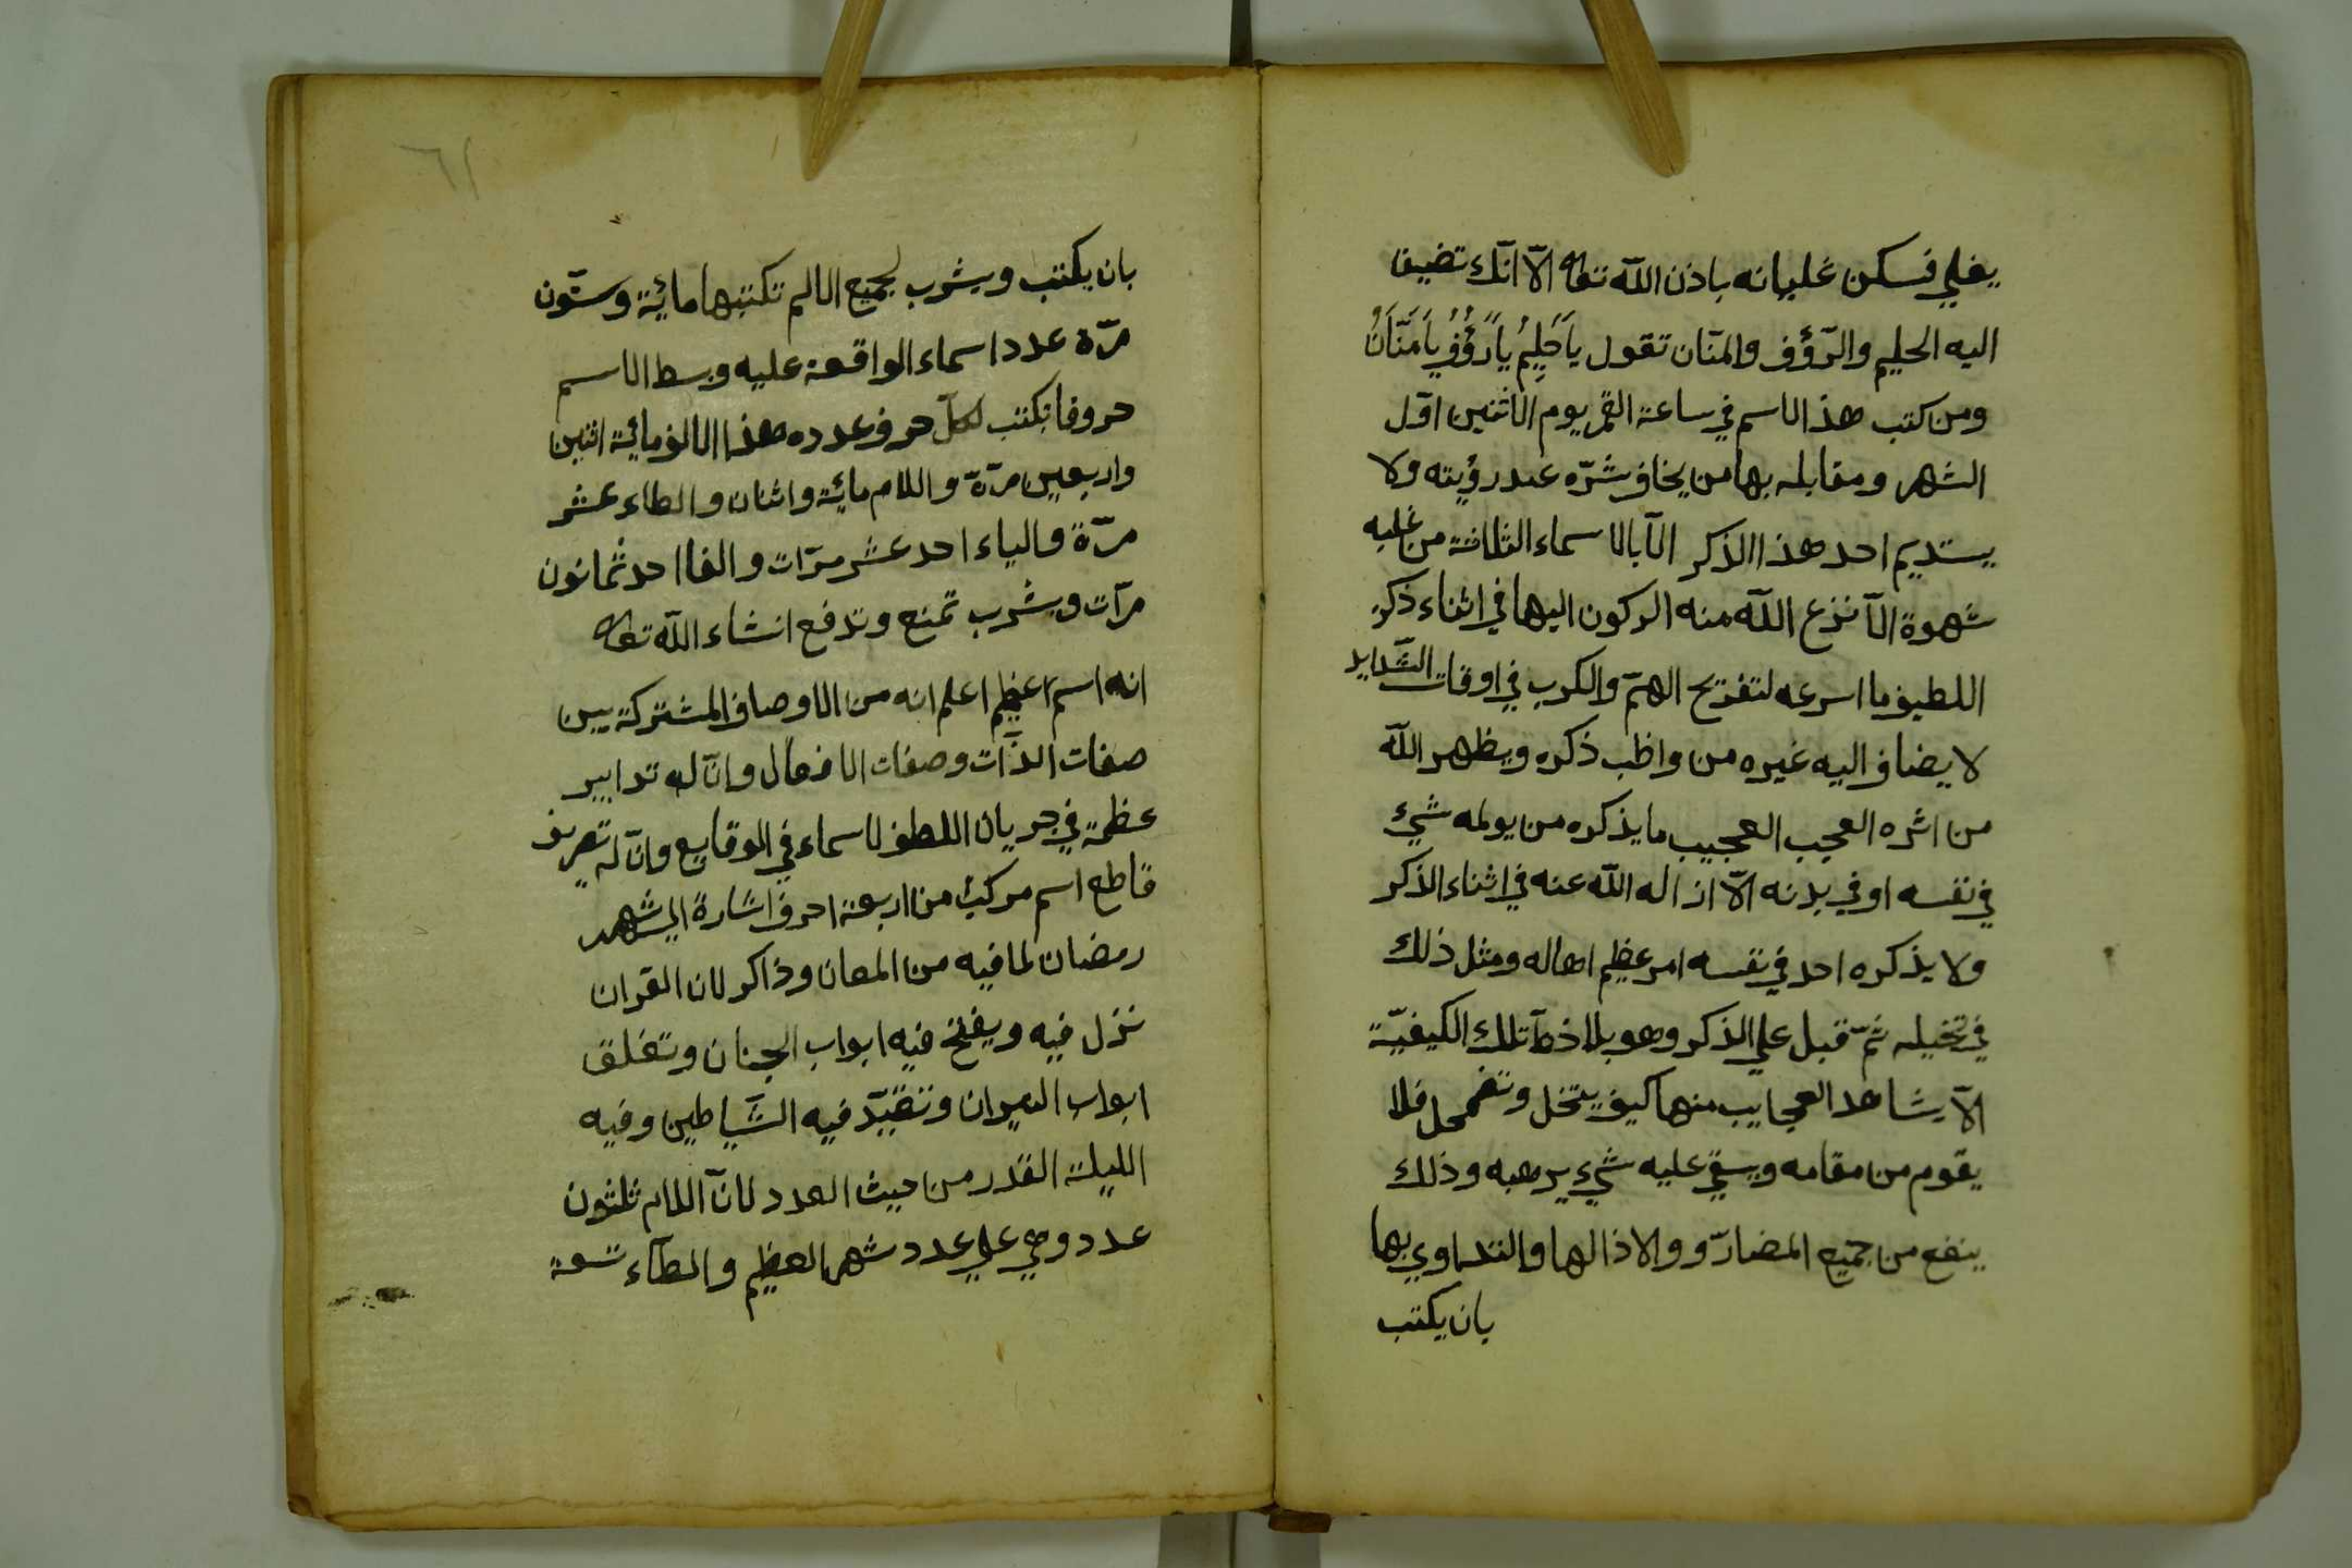 يغلي فسكن غليانه باذن الله تعالى الّا انّك تضيف
اليه الحليم والرّؤف والمنّان تقول يَاحَلِيمُ يَارَؤُفُ يَامَنَّانُ
ومن كتب هذا الاسم في ساعة القمر يوم الاثنين اوّل
الشهر ومقابله بها من يخاف شرّه عند رؤيته ولا
يستديم احد هذا الذكر الّا بالاسماء الثلاثة من غلبه
شهوة الّا نزع الله منه الركون اليها في اثناء ذكره
اللطيف ما اسرعه لتفريح الهمّ والكرب في اوقات الشّدايد
لا يضاف اليه غيره من واظب ذكره ويظهر الله
من اثره العجب العجيب ما يذكره من يولمه شيئ
في نفسه او في بدنه الّا ازاله الله عنه في اثناء الذكر
ولا يذكره احد في نفسه امر عظيم اهاله ومثل ذلك
في تخيله ثمّ قبل علي الذكر وهو يلاخظ تلك الكيفيّة
الّا يشاهد العجايب منها كيف يتخل وتضمحل فلا
يقوم من مقامه ويبقي عليه شيء يرهبه وذلك
ينفع من جميع المضارّ و والاذالها والتداوي بها
بان يكتب
٦١
بان يكتب ويشرب لجميع الالم تكتبها مائة وستّون
مرّة عدد اسماء الواقعة عليه وبسط الاسم
حروفا تكتب لكلّ حرف عدده هذا الالف مائة اثنين
واربعين مرّة واللام مائة واثنان والطاء عشر
مرّة والياء احد عشر مرّات والفا احد ثمانون
مرّات ويشرب تمنع وتدفع انشاء الله تعالى
انه اسم اعظم اعلم انه من الاوصاف المشتركة بين
صفات الذّات وصفات الافعال وانّ له تدابير
عظمة في جريان اللطف لاسماء في الوقايع وانّ له تصريف
قاطع اسم مركب من اربعة احرف اشارة الي شهر
رمضان لما فيه من المعان وذاكر لان القران
نزل فيه ويفتخ فيه ابواب الجنان وتغلق
ابواب النيران وتقيّد فيه الشّياطين وفيه
الليلة القدر من حيث العدد لانّ اللام ثلثون
عدد وهي علي عدد شهر العظيم والطّاء تسعة